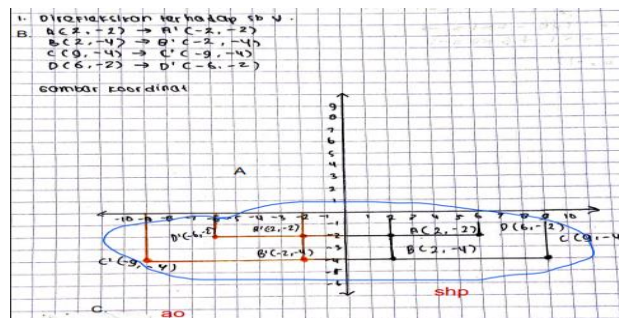 1. Direfleksikan terhadap sb y.
B. A(2, -2) → A'(-2, -2)
B(2, -4) → B'(-2, -4)
C(9, -4) → C'(-9, -4)
D(6, -2) → D'(-6, -2)
Gambar koordinat
9
8
7
6
5
4
3
A
2
1
-10 -9 -8 -7 -6 -5 -4 -3 -2 -1 1 2 3 4 5 6 7 8 9 10
-1
D'(-6, -2) A'(2, -2) -2 A(2, -2) D(6, -2)
-3
C'(-9, -4) B'(-2, -4) -4 B(2, -4) C(9, -4
-5
-6
shp
C.
ao